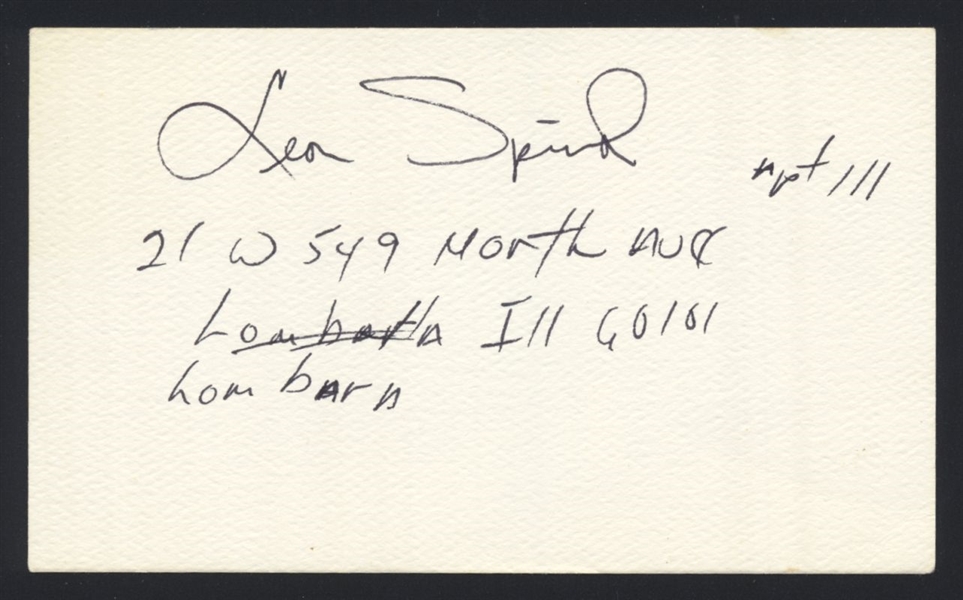 Leon Spinks
apt 111
21 W 549 North Ave
Lombarth Ill 60101
Lombard